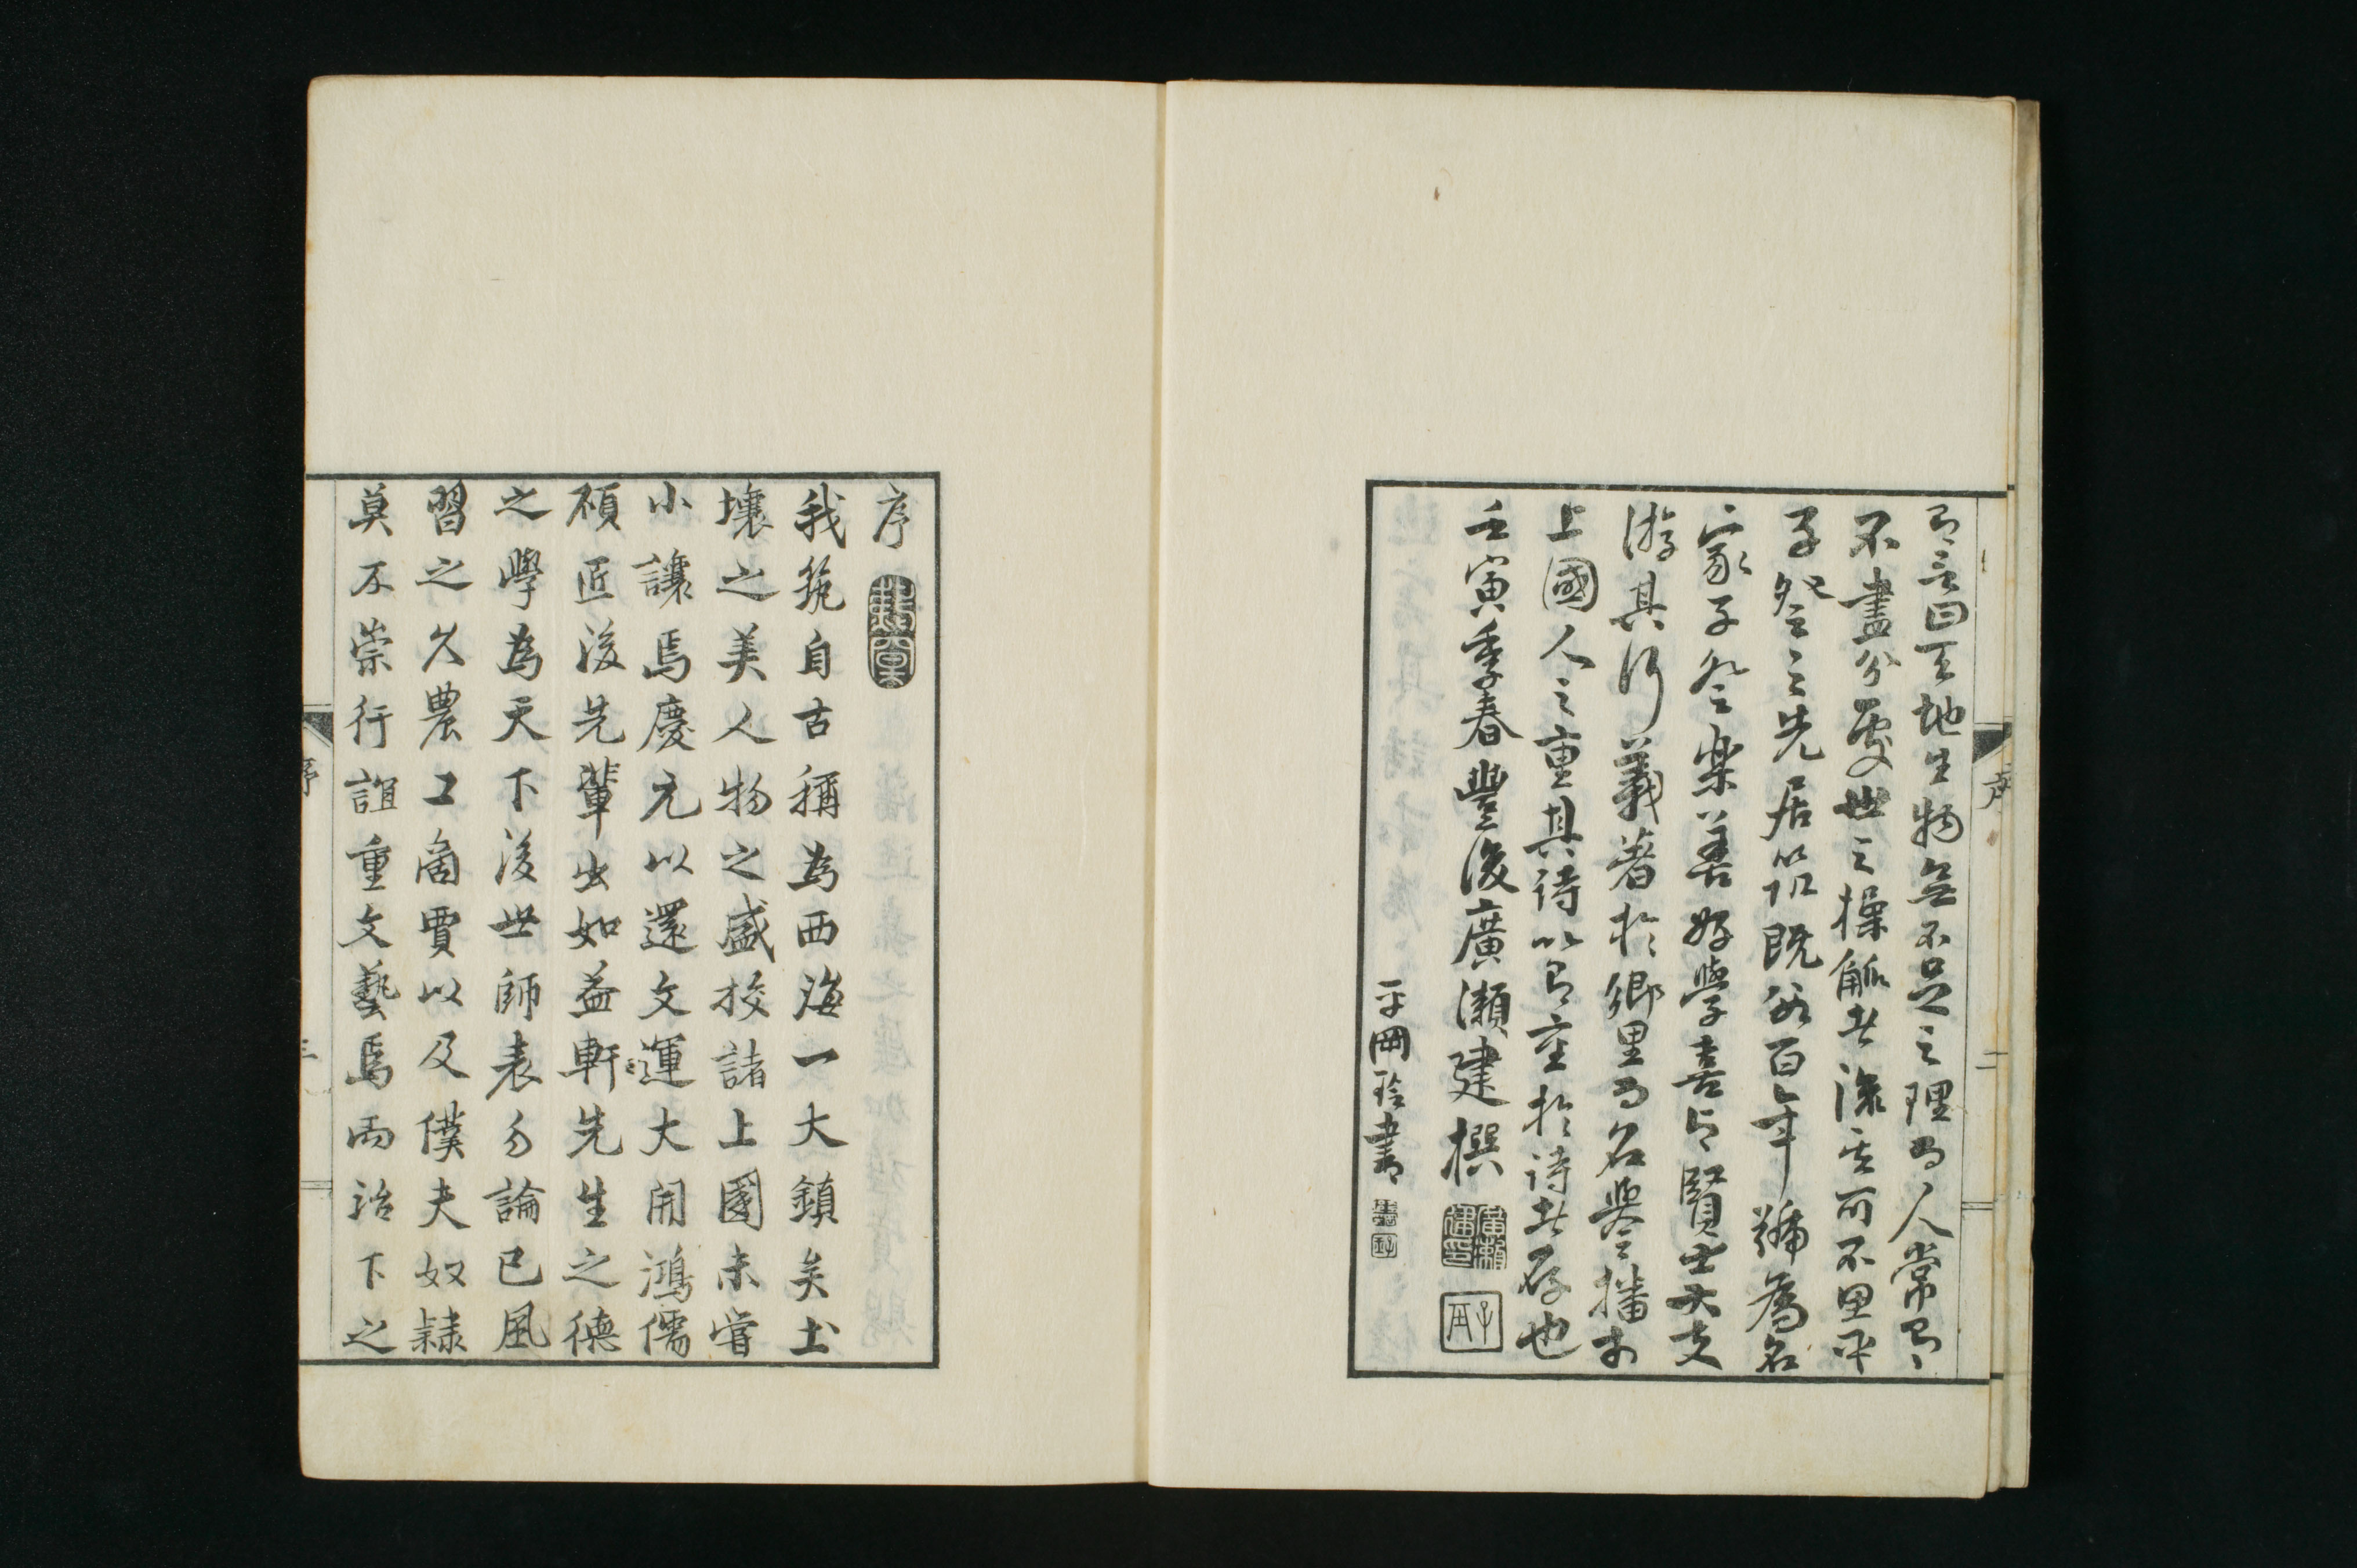 有言曰天地生物無不足之理而人常有
不盡分處世之操觚者深其可不思乎
子登之先居筑既數百年號為名
家子登樂善好學喜與賢士大夫
游其行義著於鄉里而名譽播於
上國人之重其詩以有重於詩者存也
壬寅季春豐後廣瀨建撰
平岡 書
序
二
序
我筑自古稱為西海一大鎮矣土
壤之美人物之盛挍諸上國未嘗
小讓焉慶元以還文運大開鴻儒
碩匠後先輩出如益軒先生之德
之學為天下後世師表勿論已風
習之久農工商賈以及僕夫奴隸
莫不崇行誼重文藝焉而治下之
序
三